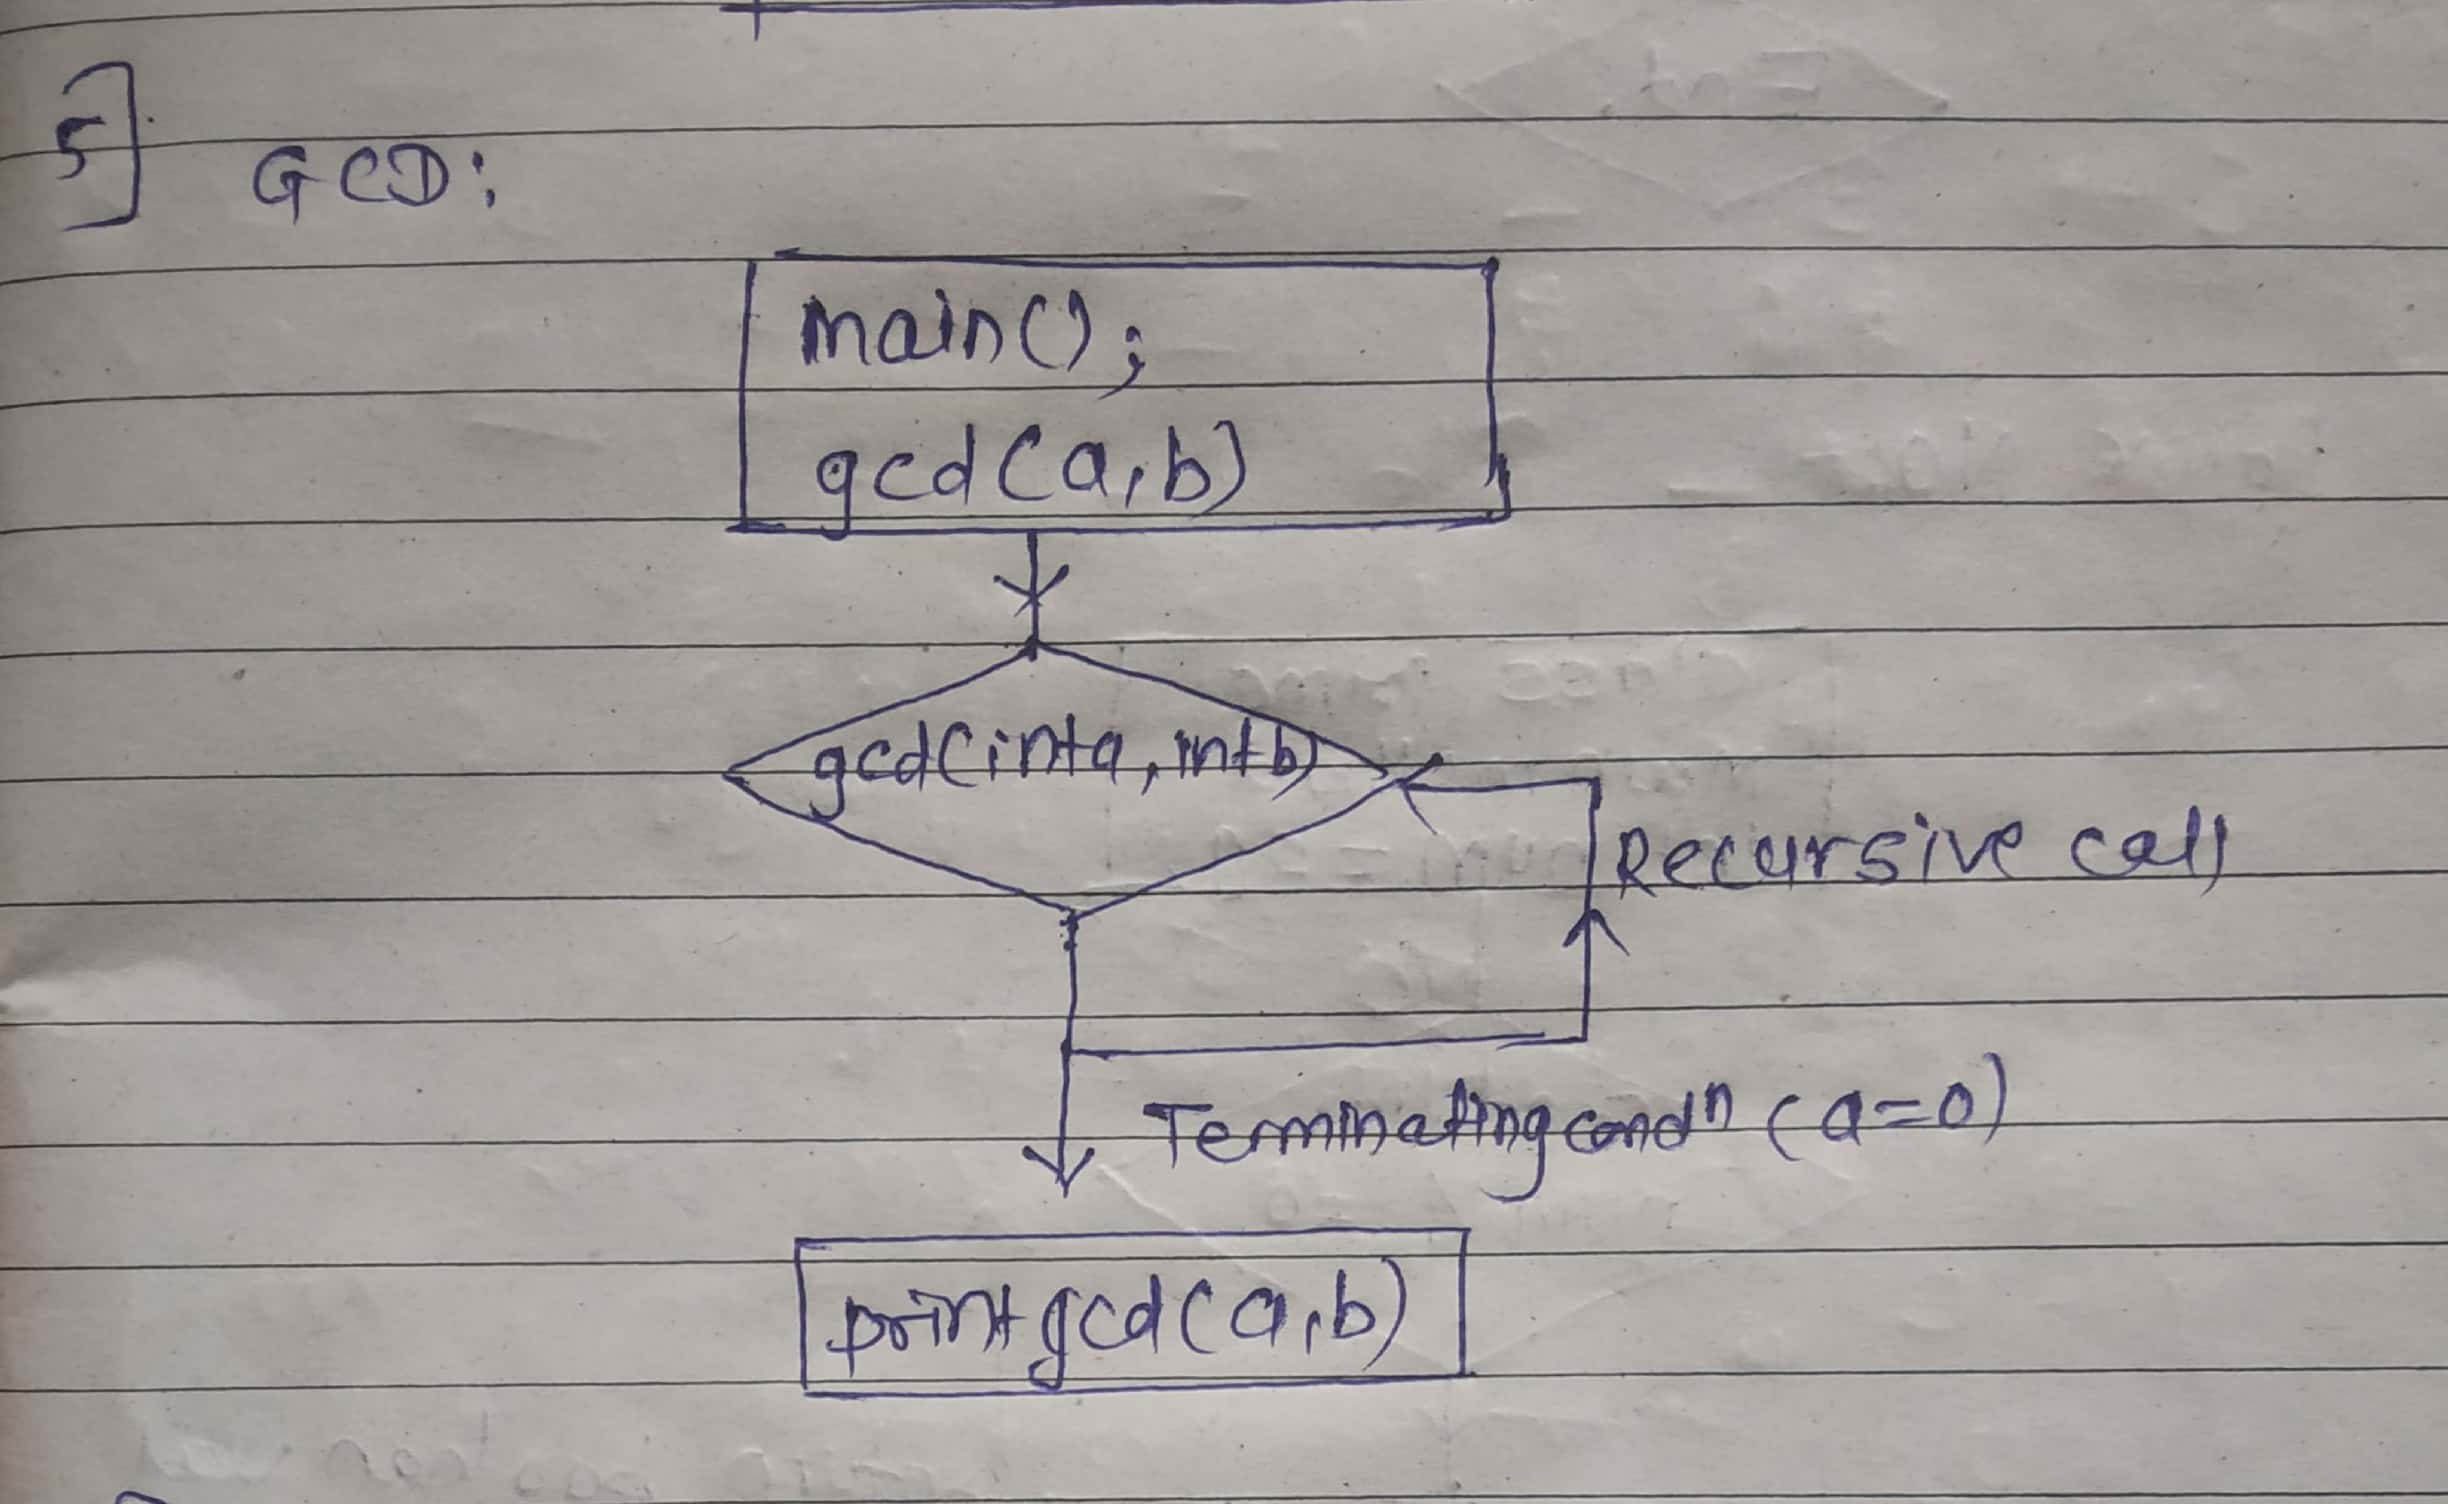 5]
GCD:
main();
gcd(a,b)
gcd(int a, int b)
Recursive call
Terminating condn (a=0)
print gcd(a,b)